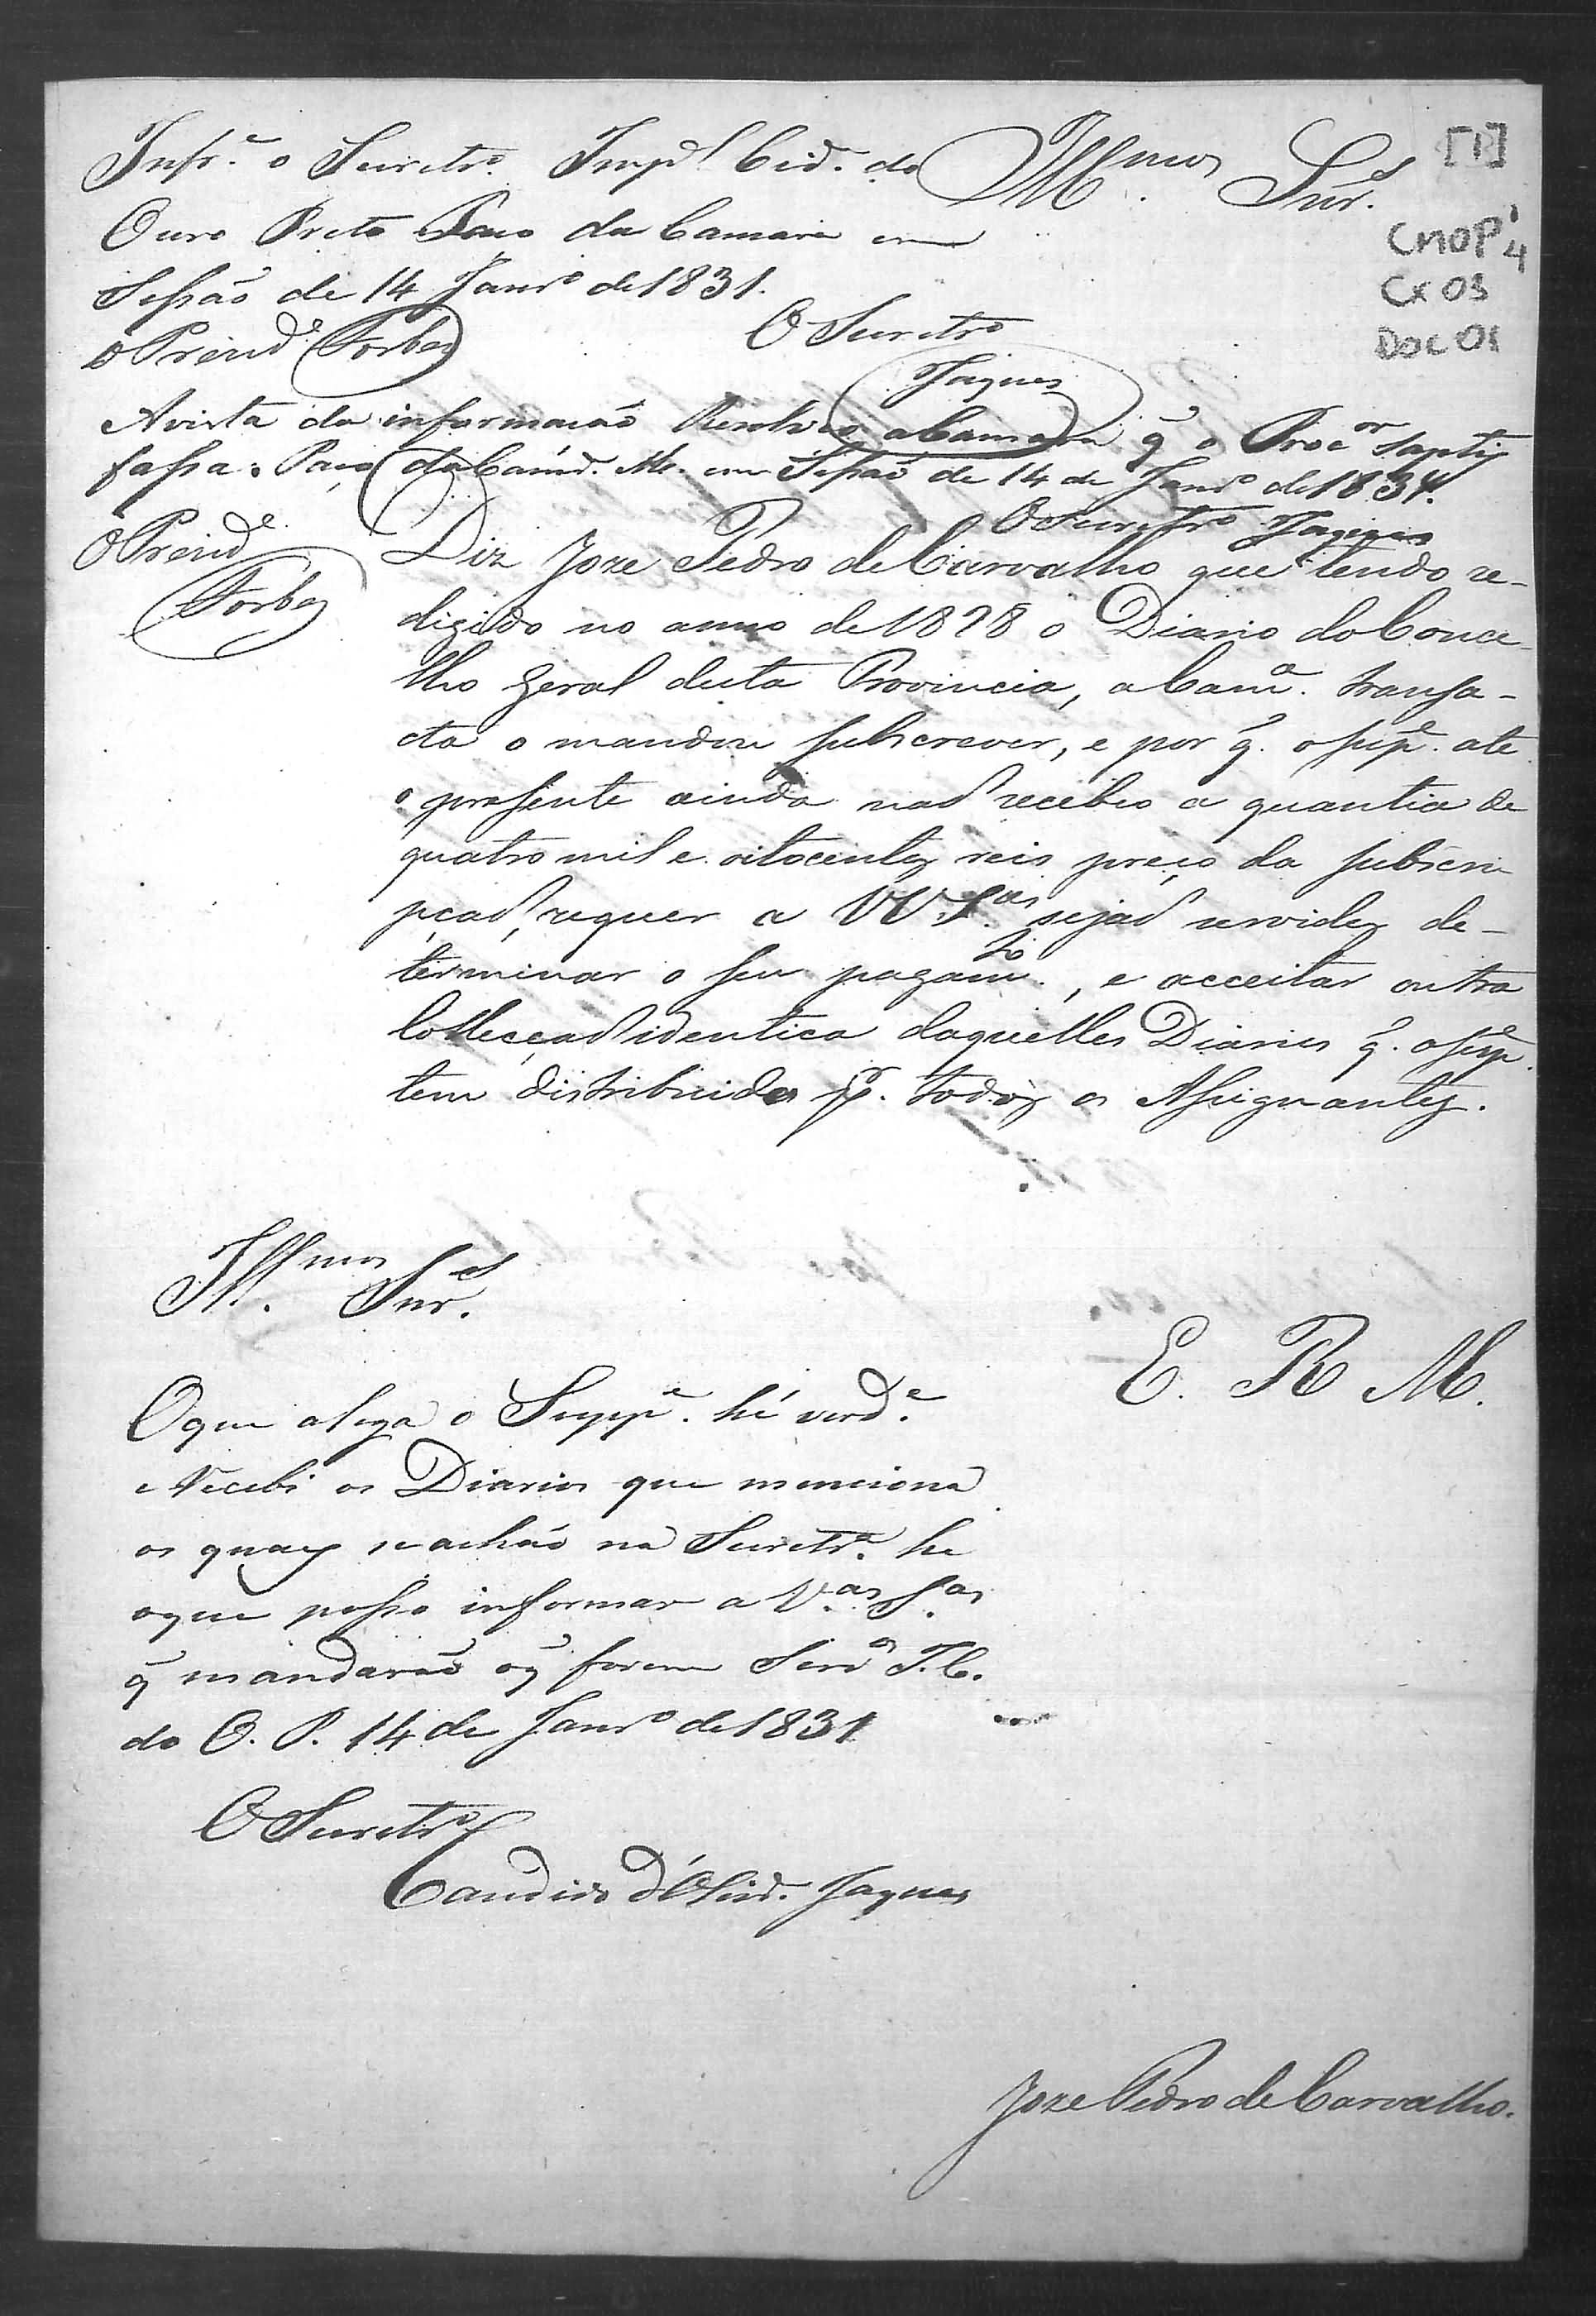 Infr.e o Secretr.o Imp.l Cid.e do
Ouro Preto Paço da Camara em
Sessão de 14 Janr.o de 1831.
O Prezid.e Forbes
O Secretr.o
Jaques
Ill.mos Snr.es
[1]
CMOP
Cx 03
Doc 01
Avista da informação Resolveo a Camara q̃ o Proc.or saptis
fassa. Paço da Cam.a M. em Sessão de 14 de Janr.o de 1831.
O Secretr.o Jaques
O Prezid.e
Forbes
Diz Joze Pedro de Carvalho que tendo re-
digido no anno de 1828 o Diario do Conce-
lho Geral desta Provincia, a Cam.a transa-
cta o mandou subscrever, e por q̃. o sup.e ate
o presente ainda naõ recebeo a quantia de
quatro mil e oitocentos reis preço da subscri
pçaõ, requer a VV. S.as sejaõ servidos de-
terminar o seu pagam.to, e acceitar outra
Collecçaõ identica daquelles Diarios q̃. o sup.e
tem distribuidos p.r todos os Assignantes.
E. R. M.
Ill.mos Snr.es
O que alega o Supp.e hé verd.e
e Recebi os Diarios que menciona
os quaes se achão na Secretr.a he
o que posso informar a V.as S.as
q̃ mandarão o q̃ forem Serv.os I. C.
do O. P. 14 de Janr.o de 1831
O Secretr.o
Candido d'Olivr.a Jaques
Joze Pedro de Carvalho.